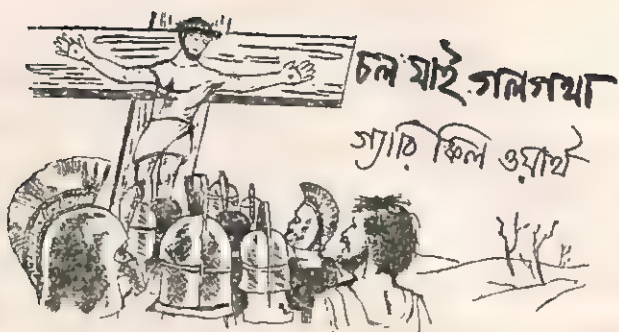 চল যাই গলগথা
গ্যারি কিল ওয়ার্থ